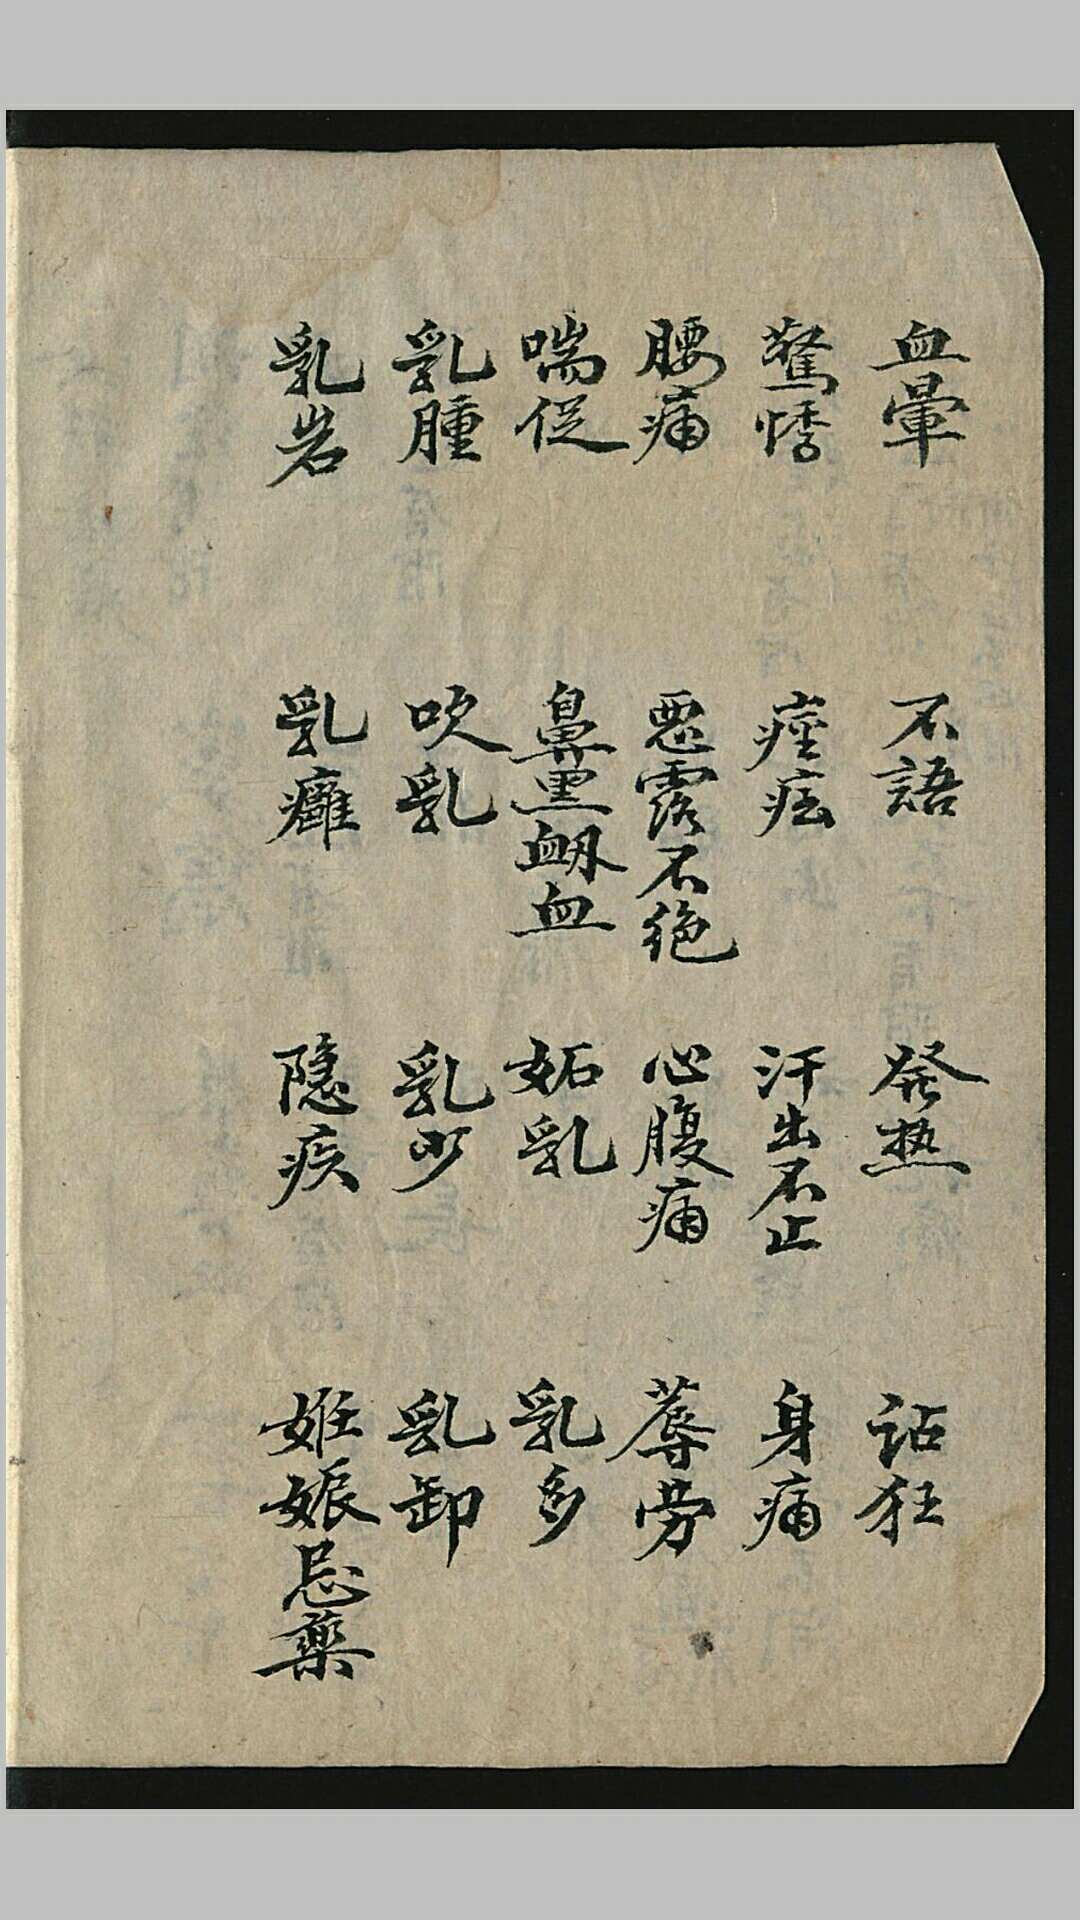 血暈 不語 発热 詀狂
驚悸 痙痃 汗出不止 身痛
腰痛 惡露不绝 心腹痛 蓐劳
喘促 鼻黑衂血 妬乳 乳多
乳腫 吹乳 乳少 乳卸
乳岩 乳癰 隐疾 妊娠忌藥